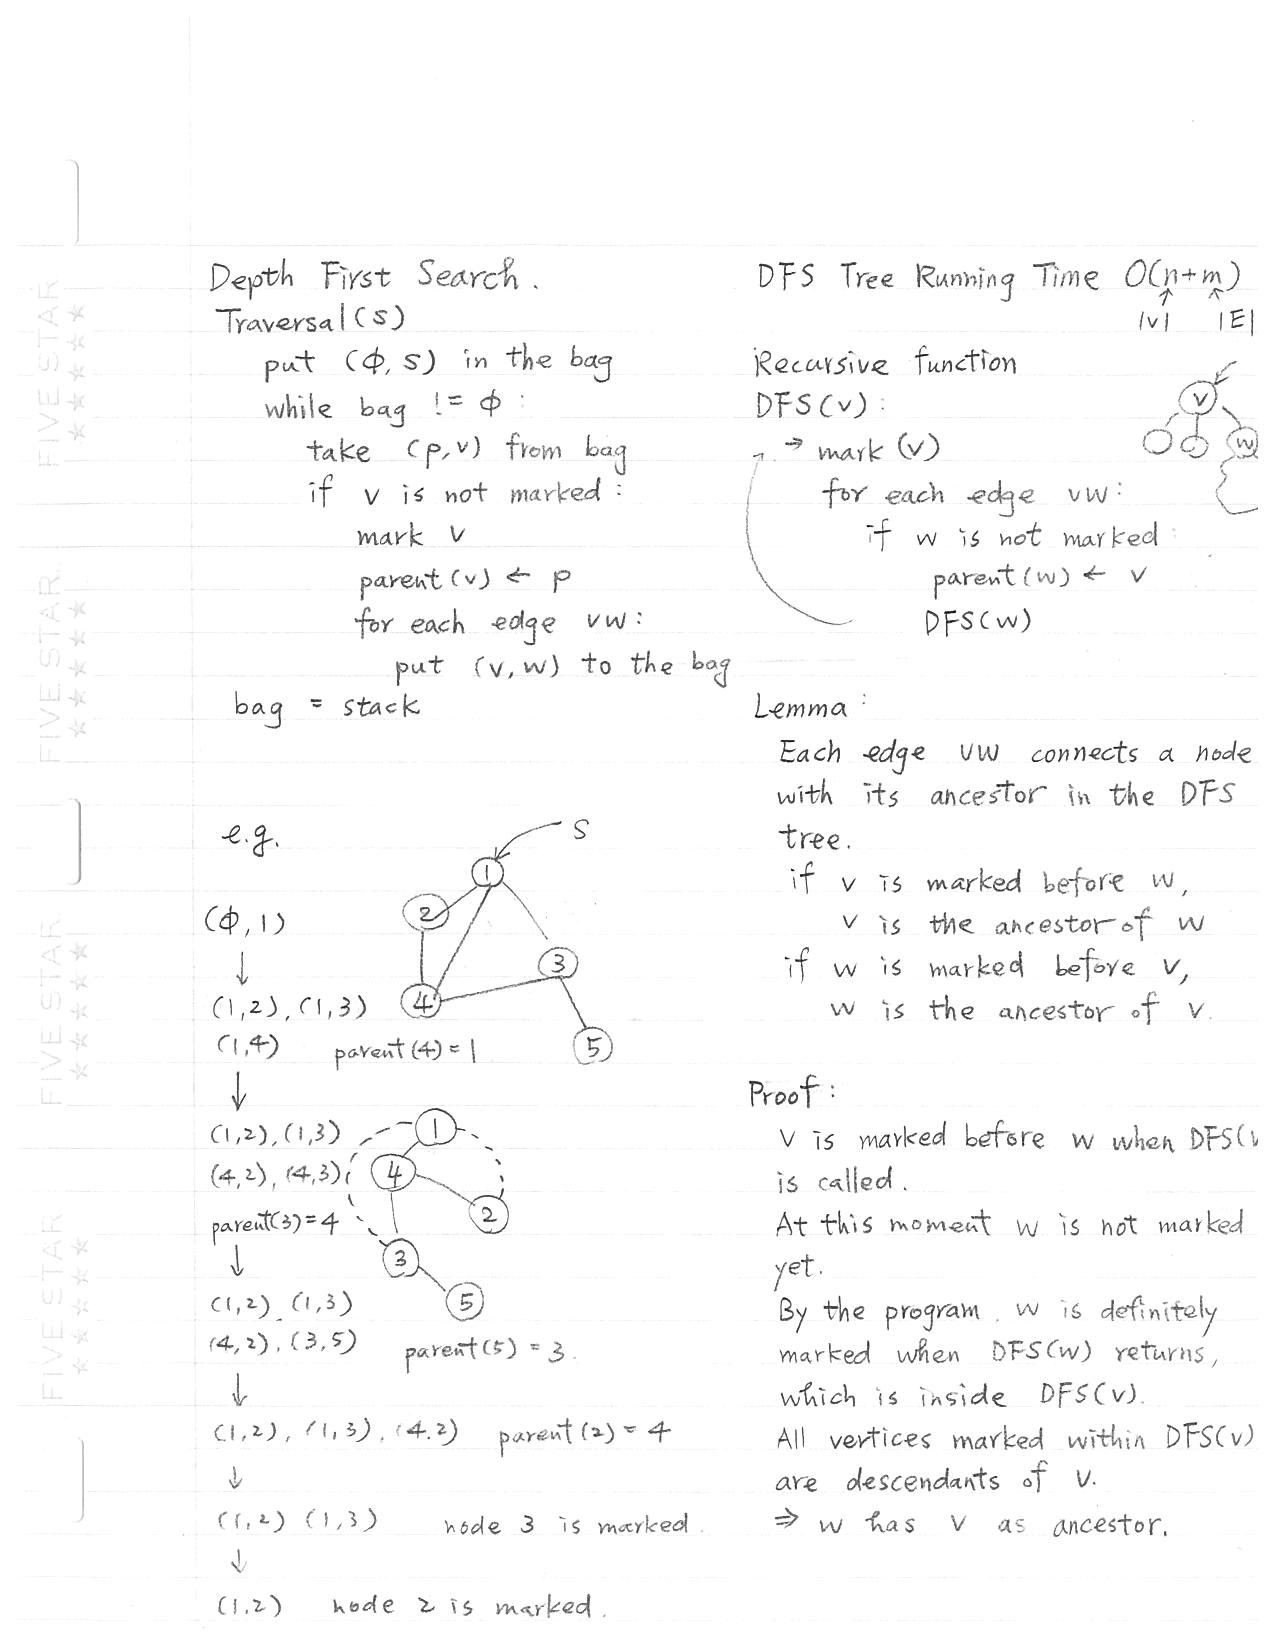 Depth First Search.
Traversal(s)
put (ϕ, s) in the bag
while bag != ϕ :
take (p,v) from bag
if v is not marked :
mark v
parent(v) ← p
for each edge vw:
put (v,w) to the bag
bag = stack
e.g.
S
1
2
3
4
5
(ϕ,1)
↓
(1,2), (1,3)
(1,4) parent(4)=1
↓
(1,2), (1,3)
(4,2), (4,3)
parent(3)=4
1
4
2
3
5
↓
(1,2) (1,3)
(4,2), (3,5) parent(5) = 3.
↓
(1,2), (1,3), (4,2) parent(2) = 4
↓
(1,2) (1,3) node 3 is marked.
↓
(1,2) node 2 is marked.
DFS Tree Running Time O(n+m)
|v| |E|
Recursive function
DFS(v) :
→ mark (v)
for each edge vw:
if w is not marked :
parent(w) ← v
DFS(w)
v
w
Lemma :
Each edge vw connects a node
with its ancestor in the DFS
tree.
if v is marked before w,
v is the ancestor of w
if w is marked before v,
w is the ancestor of v.
Proof :
v is marked before w when DFS(v
is called.
At this moment w is not marked
yet.
By the program, w is definitely
marked when DFS(w) returns,
which is inside DFS(v).
All vertices marked within DFS(v)
are descendants of v.
⇒ w has v as ancestor.
FIVE STAR
FIVE STAR
FIVE STAR
FIVE STAR